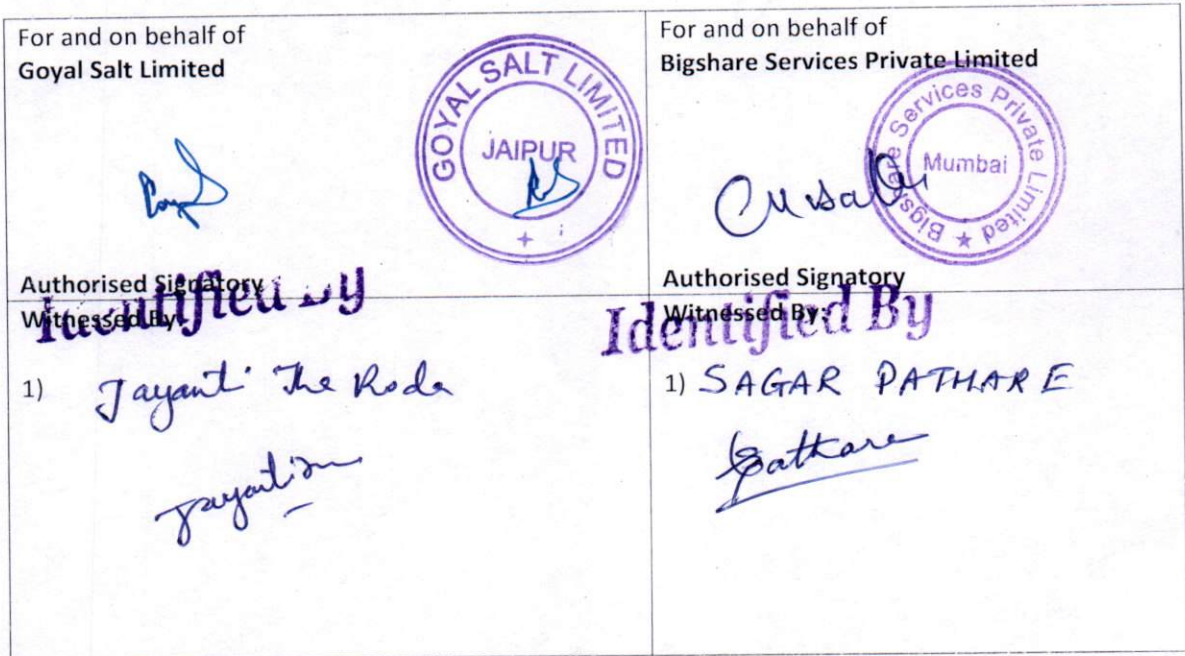 For and on behalf of
Goyal Salt Limited
GOYAL SALT LIMITED
JAIPUR
Authorised Signatory
Identified By
Witnessed By:
1) Jayanti The Roda
For and on behalf of
Bigshare Services Private Limited
Bigshare Services Private Limited
Mumbai
Authorised Signatory
Identified By
Witnessed By:
1) SAGAR PATHARE
Pathare